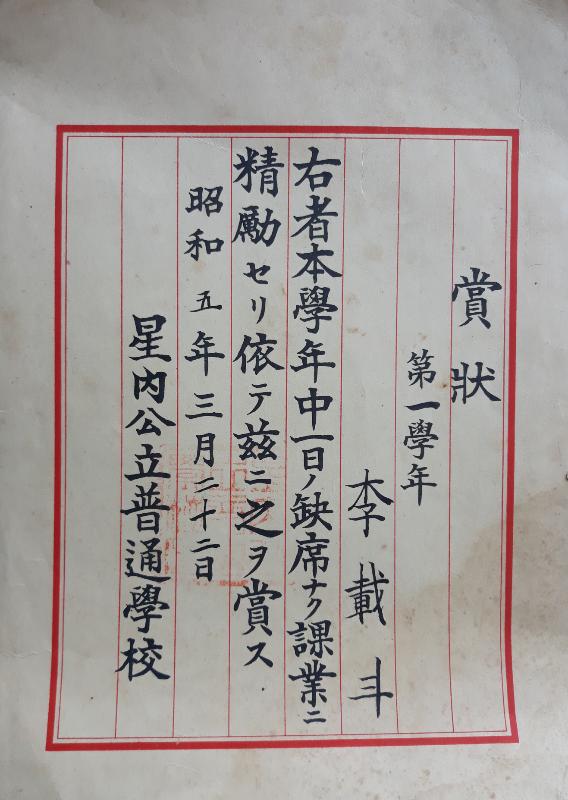 賞狀
第一學年
李載斗
右者本學年中一日ノ缺席ナク課業ニ
精勵セリ依テ茲ニ之ヲ賞ス
昭和五年三月二十二日
星內公立普通學校